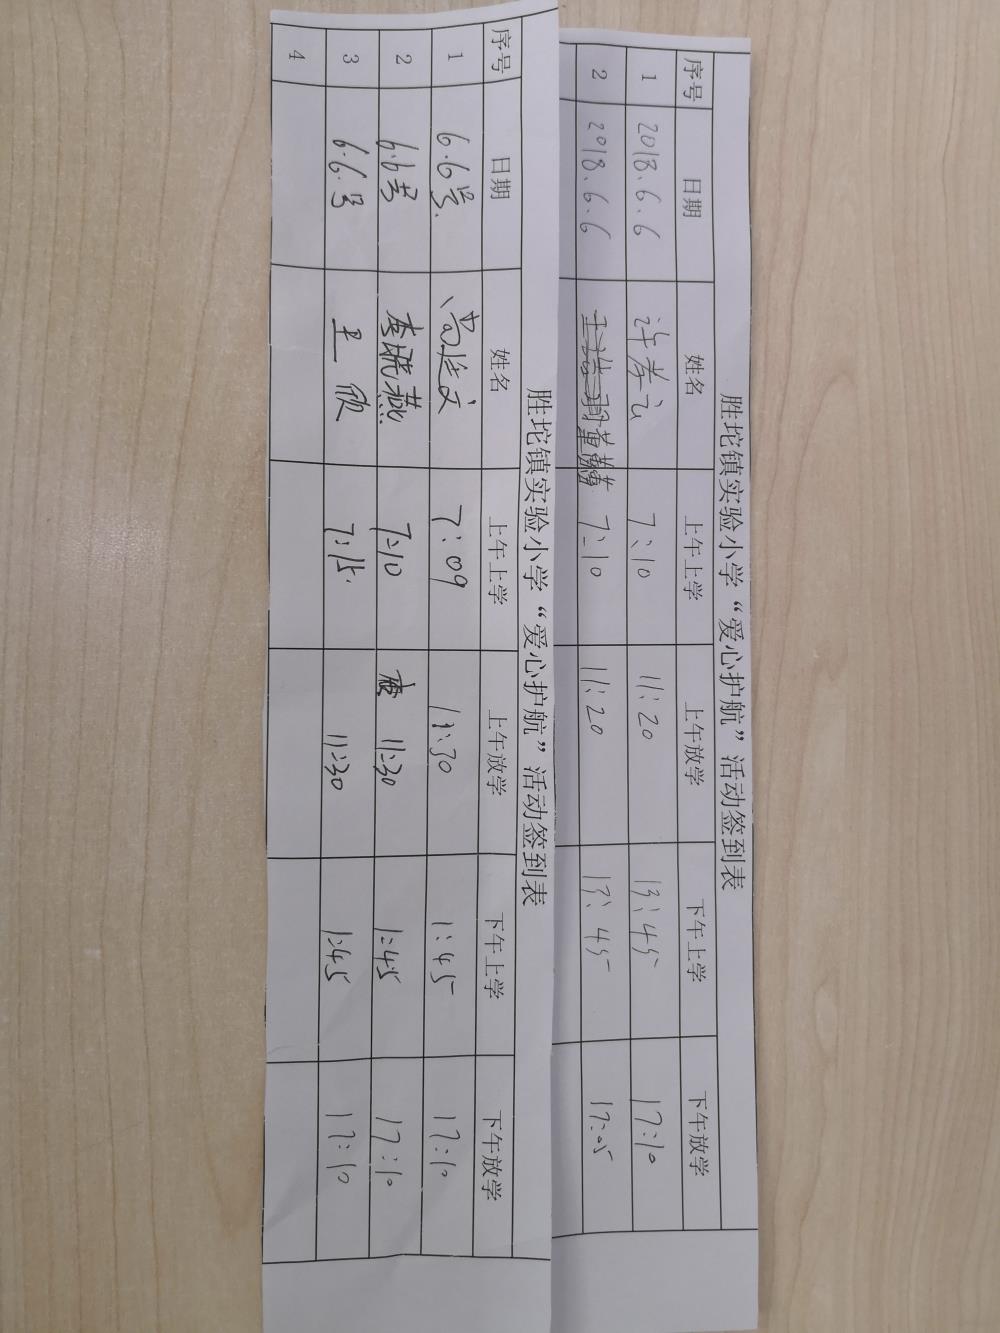 胜坨镇实验小学“爱心护航”活动签到表
序号 日期 姓名 上午上学 上午放学 下午上学 下午放学
1 2018.6.6 许孝云 7:10 11:20 13:45 17:10
2 2018.6.6 7:10 11:20 13:45 17:05
胜坨镇实验小学“爱心护航”活动签到表
序号 日期 姓名 上午上学 上午放学 下午上学 下午放学
1 6.6号. 尚延文 7:09 11:30 1:45 17:10
2 6.6号 燕 7:10 11:30 1:45 17:10
3 6.6.号 王欣 7:15. 11:30 1:45 17:10
4